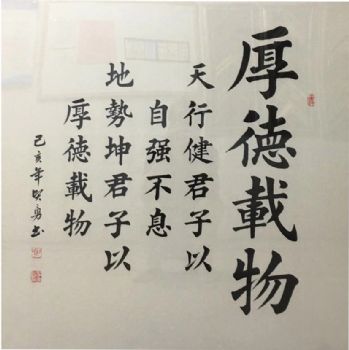 厚德載物
天行健君子以
自强不息
地勢坤君子以
厚德載物
己亥年贤勇书